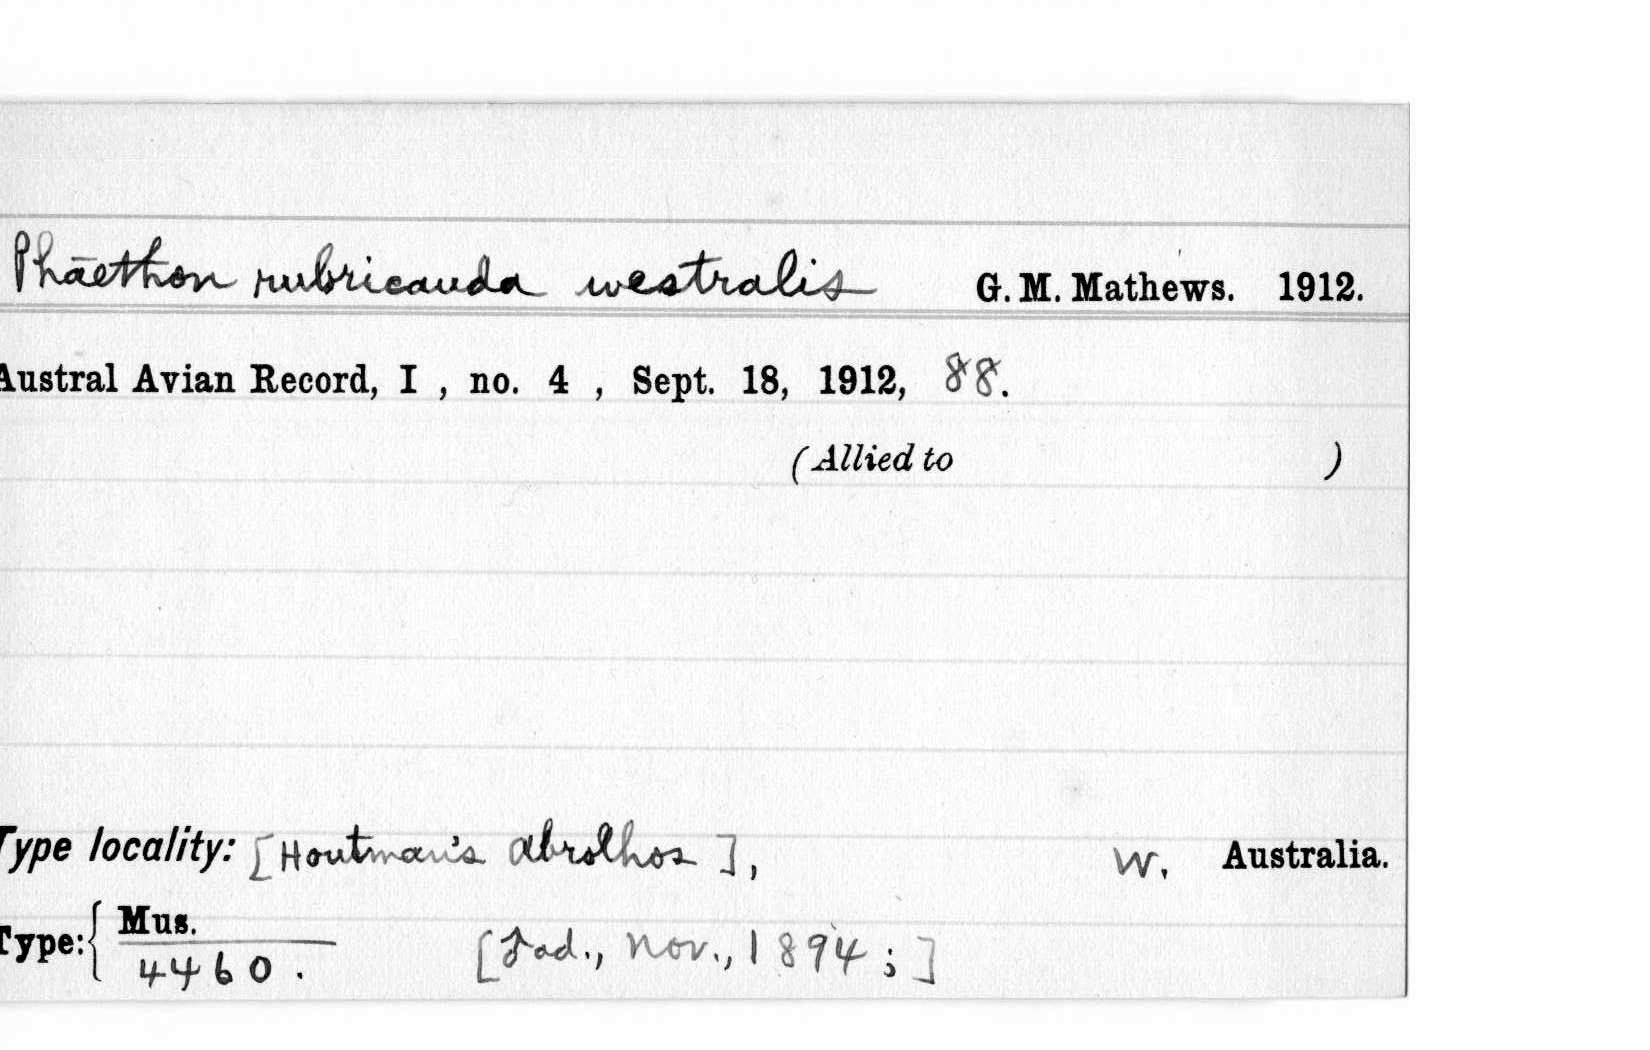 Phāethon rubricauda westralis G. M. Mathews. 1912.
Austral Avian Record, I , no. 4 , Sept. 18, 1912, 88.
(Allied to )
Type locality: [Houtman's Abrolhos ], W. Australia.
Type: { Mus.
4460 . [♂ad., Nov., 1894 ; ]